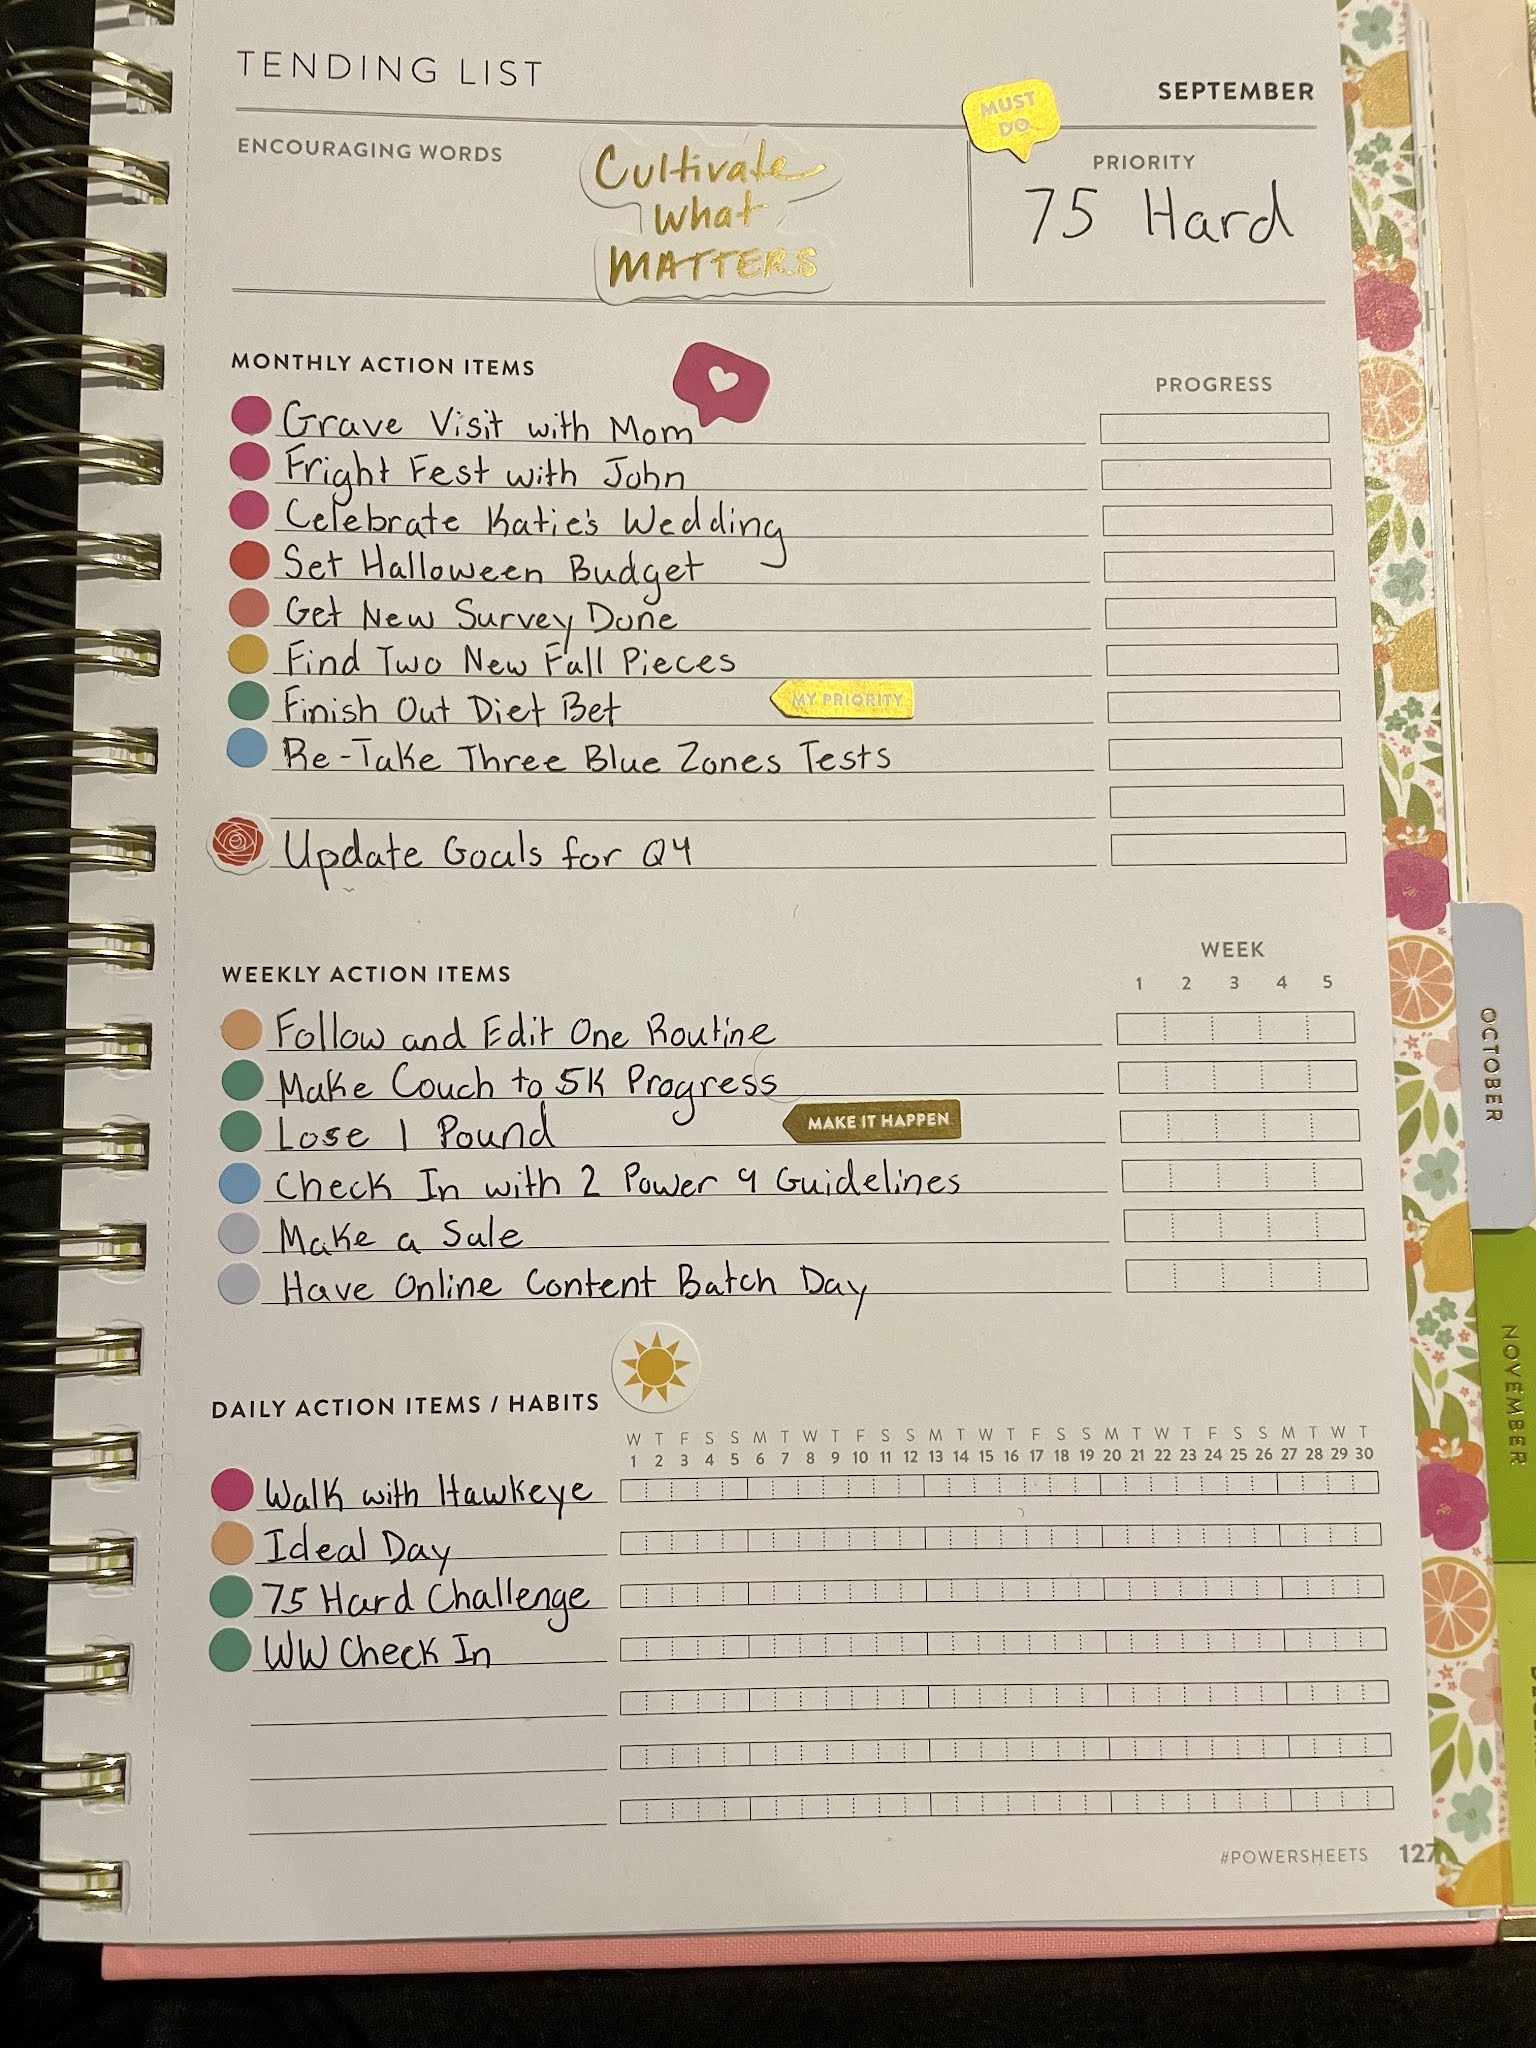 TENDING LIST
SEPTEMBER
MUST
DO
ENCOURAGING WORDS
Cultivate
what
MATTERS
PRIORITY
75 Hard
MONTHLY ACTION ITEMS
PROGRESS
Grave Visit with Mom
Fright Fest with John
Celebrate Katie's Wedding
Set Halloween Budget
Get New Survey Done
Find Two New Fall Pieces
Finish Out Diet Bet
MY PRIORITY
Re-Take Three Blue Zones Tests
Update Goals for Q4
WEEKLY ACTION ITEMS
WEEK
1 2 3 4 5
Follow and Edit One Routine
Make Couch to 5K Progress
Lose 1 Pound
MAKE IT HAPPEN
Check In with 2 Power 9 Guidelines
Make a Sale
Have Online Content Batch Day
DAILY ACTION ITEMS / HABITS
W T F S S M T W T F S S M T W T F S S M T W T F S S M T W T
1 2 3 4 5 6 7 8 9 10 11 12 13 14 15 16 17 18 19 20 21 22 23 24 25 26 27 28 29 30
Walk with Hawkeye
Ideal Day
75 Hard Challenge
WW Check In
#POWERSHEETS 127
OCTOBER
NOVEMBER